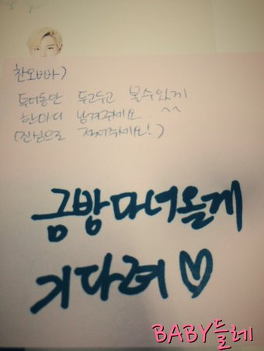 찬오빠)
두고두고 볼수있게
한마디 남겨주세요 ^^
(진심으로 적어주세요!)
금방 마녀올게
기다려♡
BABY둘레